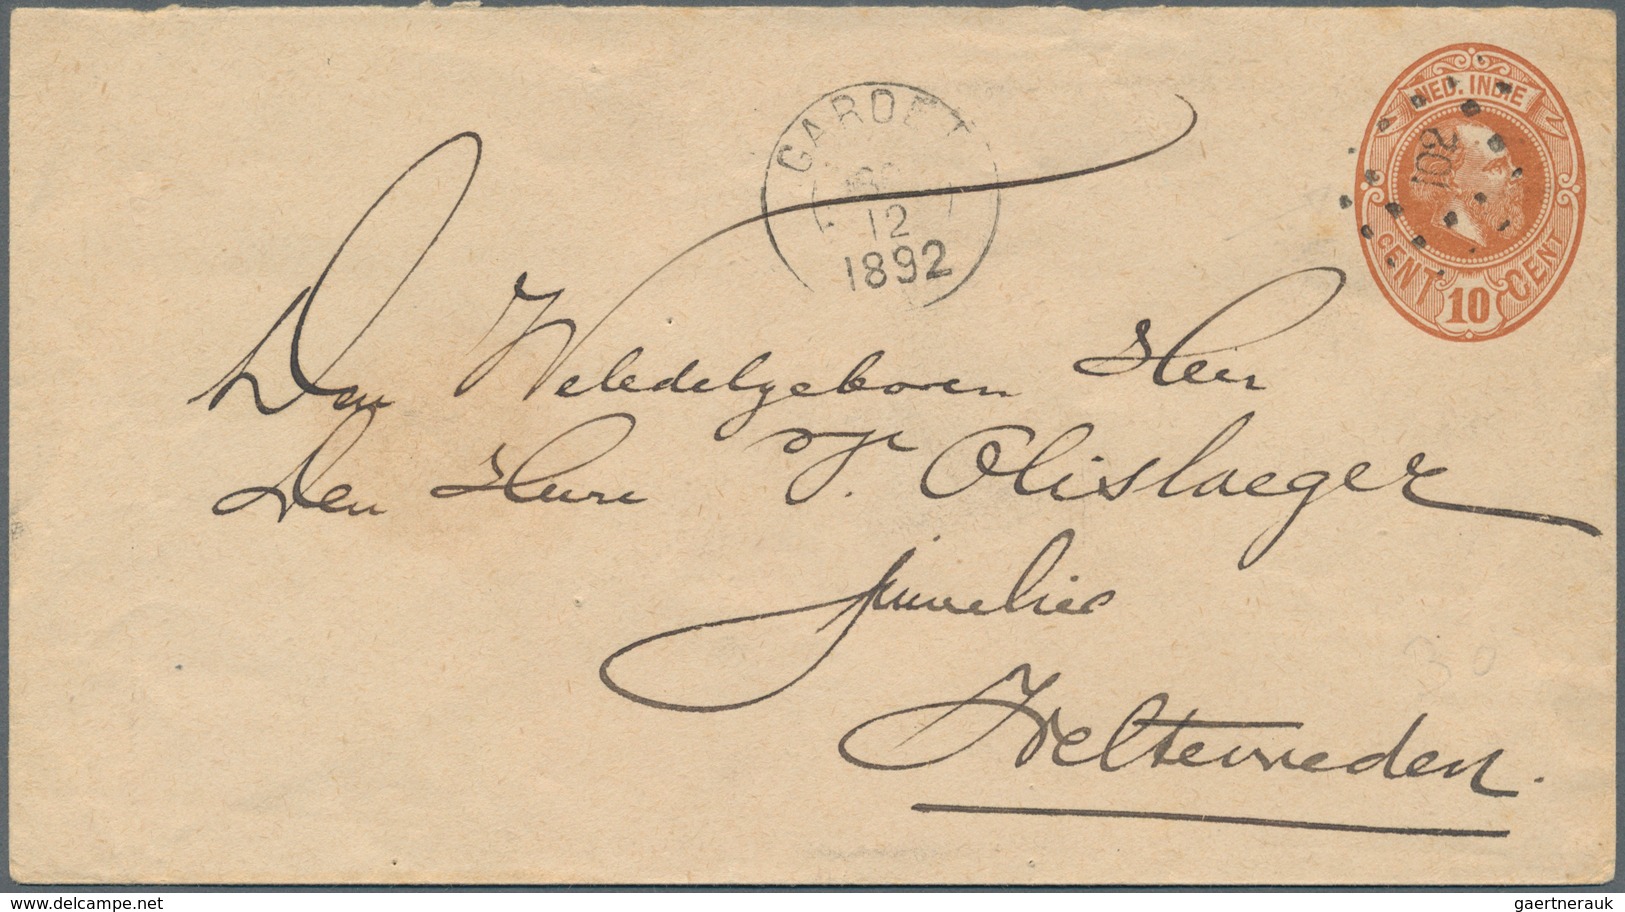 NED. INDIE
102
CENT 10 CENT
GAROET
12
1892
Den Weledelgeboren Heer
Den Heere J. Olislaeger
Juwelier
Weltevreden.
delcampe.net
gaertnerauk